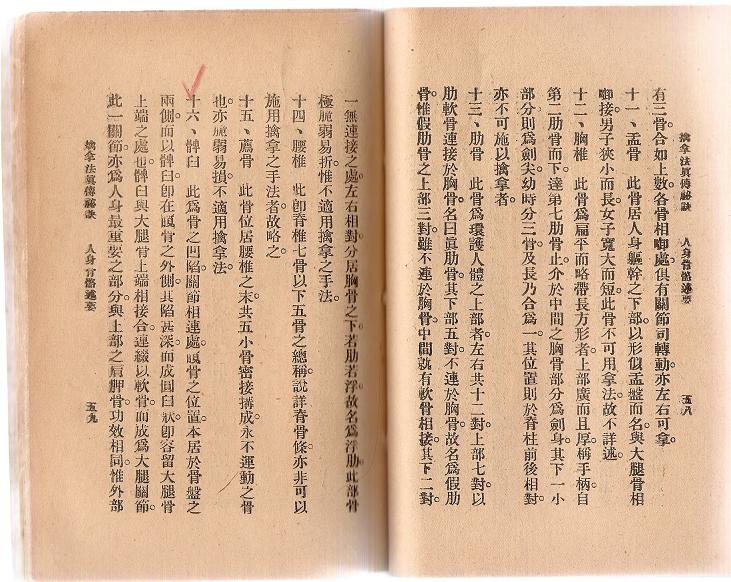 擒拿法眞傳秘訣　人身骨骼述要　五八
有三骨。合如上數。各骨相啣處。俱有關節司轉動。亦左右可拿。
十一、盂骨　此骨居人身軀幹之下部。以形似盂盤而名。與大腿骨相
啣接。男子狹小而長。女子寬大而短。此骨不可用拿法。故不詳述。
十二、胸椎　此骨爲扁平而略帶長方形者。上部廣而且厚。稱手柄。自
第二肋骨而下。達第七肋骨止。介於中間之胸骨部分爲劍身。其下一小
部分則爲劍尖。幼時分三骨。及長乃合爲一。其位置則於脊柱前後相對。
亦不可施以擒拿者。
十三、肋骨　此骨爲環護人體之上部者。左右共十二對。上部七對。以
肋軟骨連接於胸骨。名曰眞肋骨。其下部五對。不連於胸骨。故名爲假肋
骨。惟假肋骨之上部三對。雖不連於胸骨。中間就有軟骨相接。其下二對。
一無連接之處。左右相對。分居胸骨之下。若肋若浮。故名爲浮肋。此部骨
極脆弱易折。惟不適用擒拿之手法。
十四、腰椎　此卽脊椎七骨以下五骨之總稱。說詳脊骨條。亦非可以
施用擒拿之手法者。故略之。
十五、薦骨　此骨位居腰椎之末。共五小骨密接搆成。永不運動之骨
也。亦脆弱易損。不適用擒拿法。
十六、髀臼　此爲骨之凹陷關節相連處。嘎骨之位置。本居於骨盤之
兩側。而以髀臼卽在嘎骨之外側。其陷甚深。而成圓臼狀。卽容留大腿骨
上端之處也。髀臼與大腿骨上端相接合。連綴以軟骨。而成爲大腿關節。
此一關節。亦爲人身最重要之部分。與上部之肩胛骨。功效相同。惟外部
擒拿法眞傳秘訣　人身骨骼述要　五九